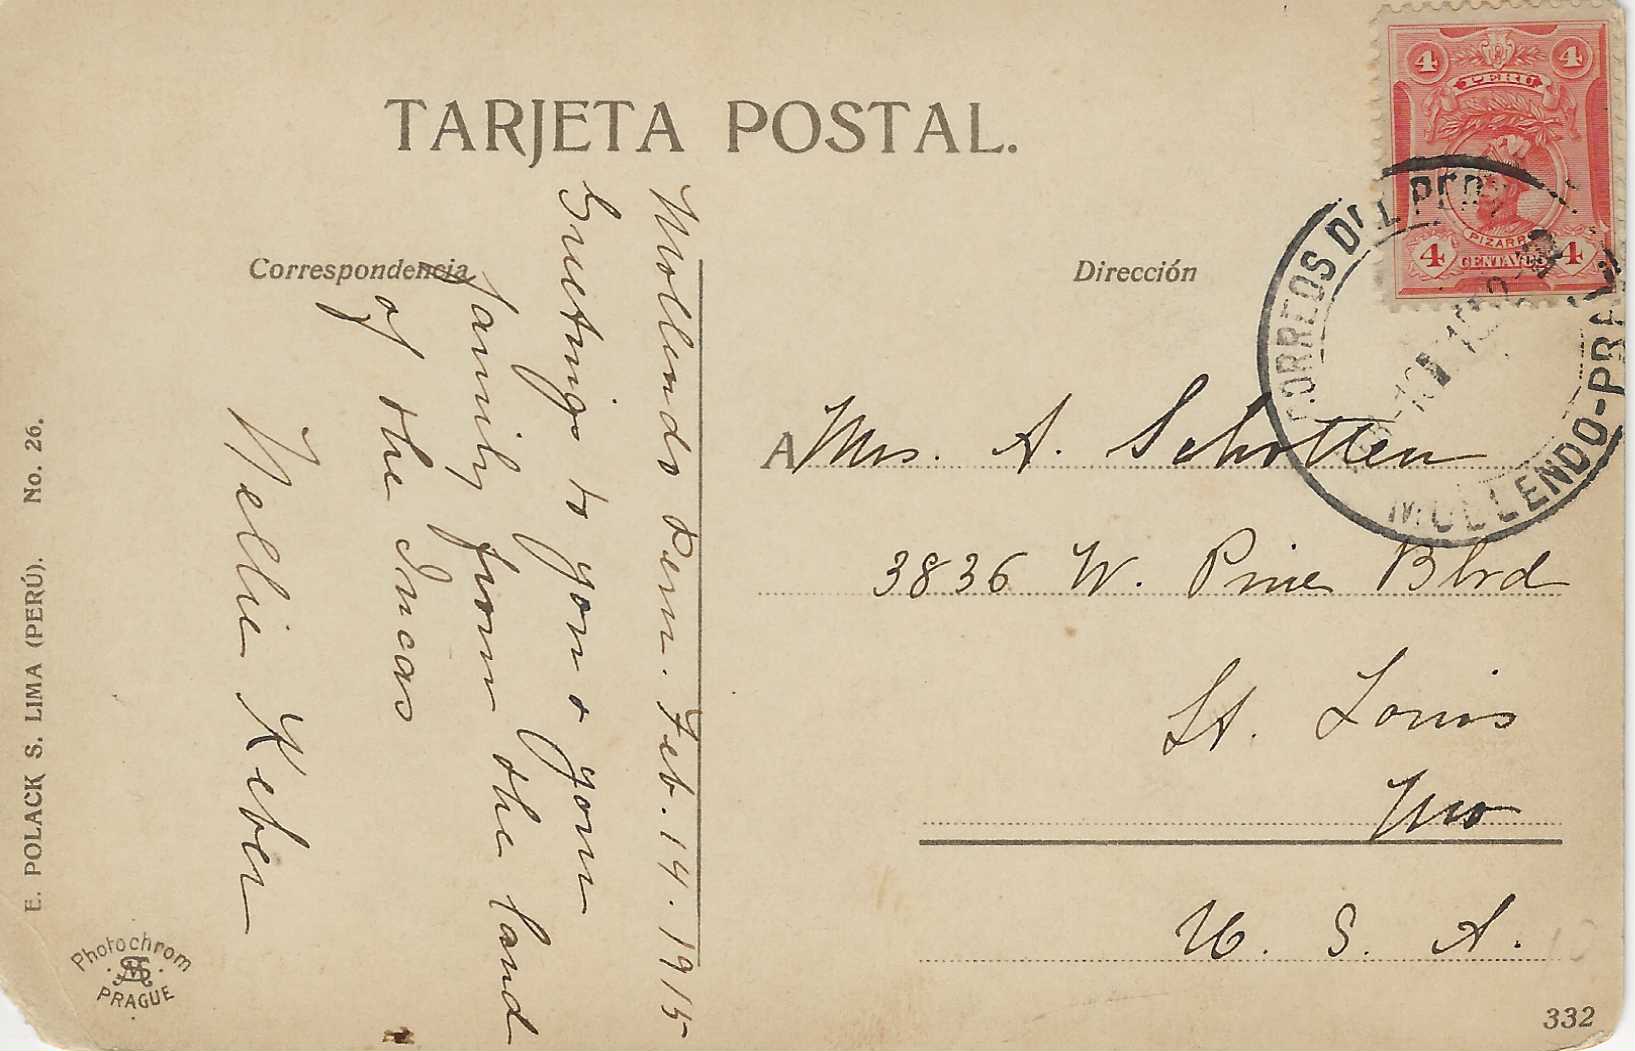 TARJETA POSTAL.
Correspondencia
Dirección
4 4
PERU
PIZARRO
4 CENTAVOS 4
CORREOS DEL PERU
MOLLENDO-PRAL
Mollendo Peru. Feb. 14. 1915
Greetings to you & your
family from the land
of the Incas
Nellie Keber
A Mrs. A. Scholten
3836 W. Pine Blvd
St. Louis
Mo
U. S. A.
E. POLACK S. LIMA (PERÚ). No. 26.
Photochrom
PRAGUE
332